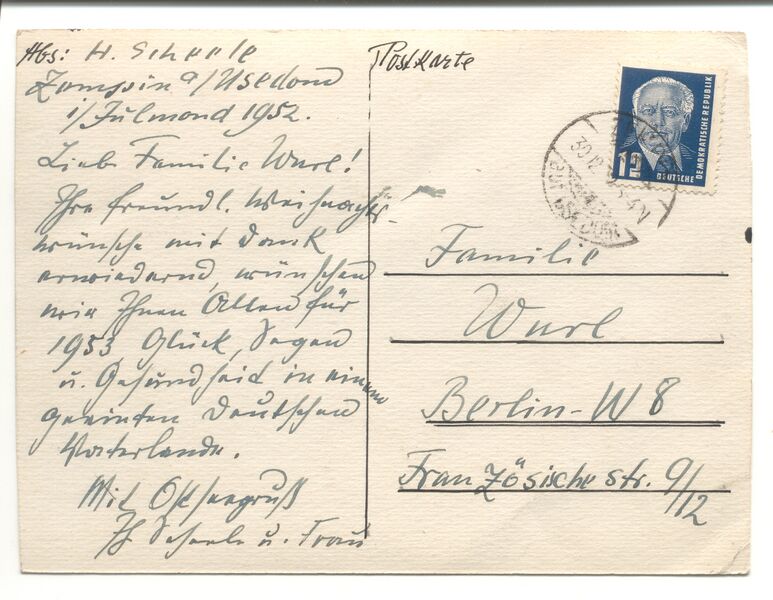 Abs: H. Scheele
Zempin a/Usedom
i/Julmond 1952.
Liebe Familie Wurl!
Ihre freundl. Weihnachts-
wünsche mit Dank
erwiedernd, wünschen
wir Ihnen Allen für
1953 Glück, Segen
u. Gesundheit in einem
geeinten Deutschen
Vaterlande.
Mit Ostseegruß
H Scheele u. Frau
Postkarte
12
DEUTSCHE
DEMOKRATISCHE REPUBLIK
30.12.
Familie
Wurl
Berlin-W8
Französische str. 9/12